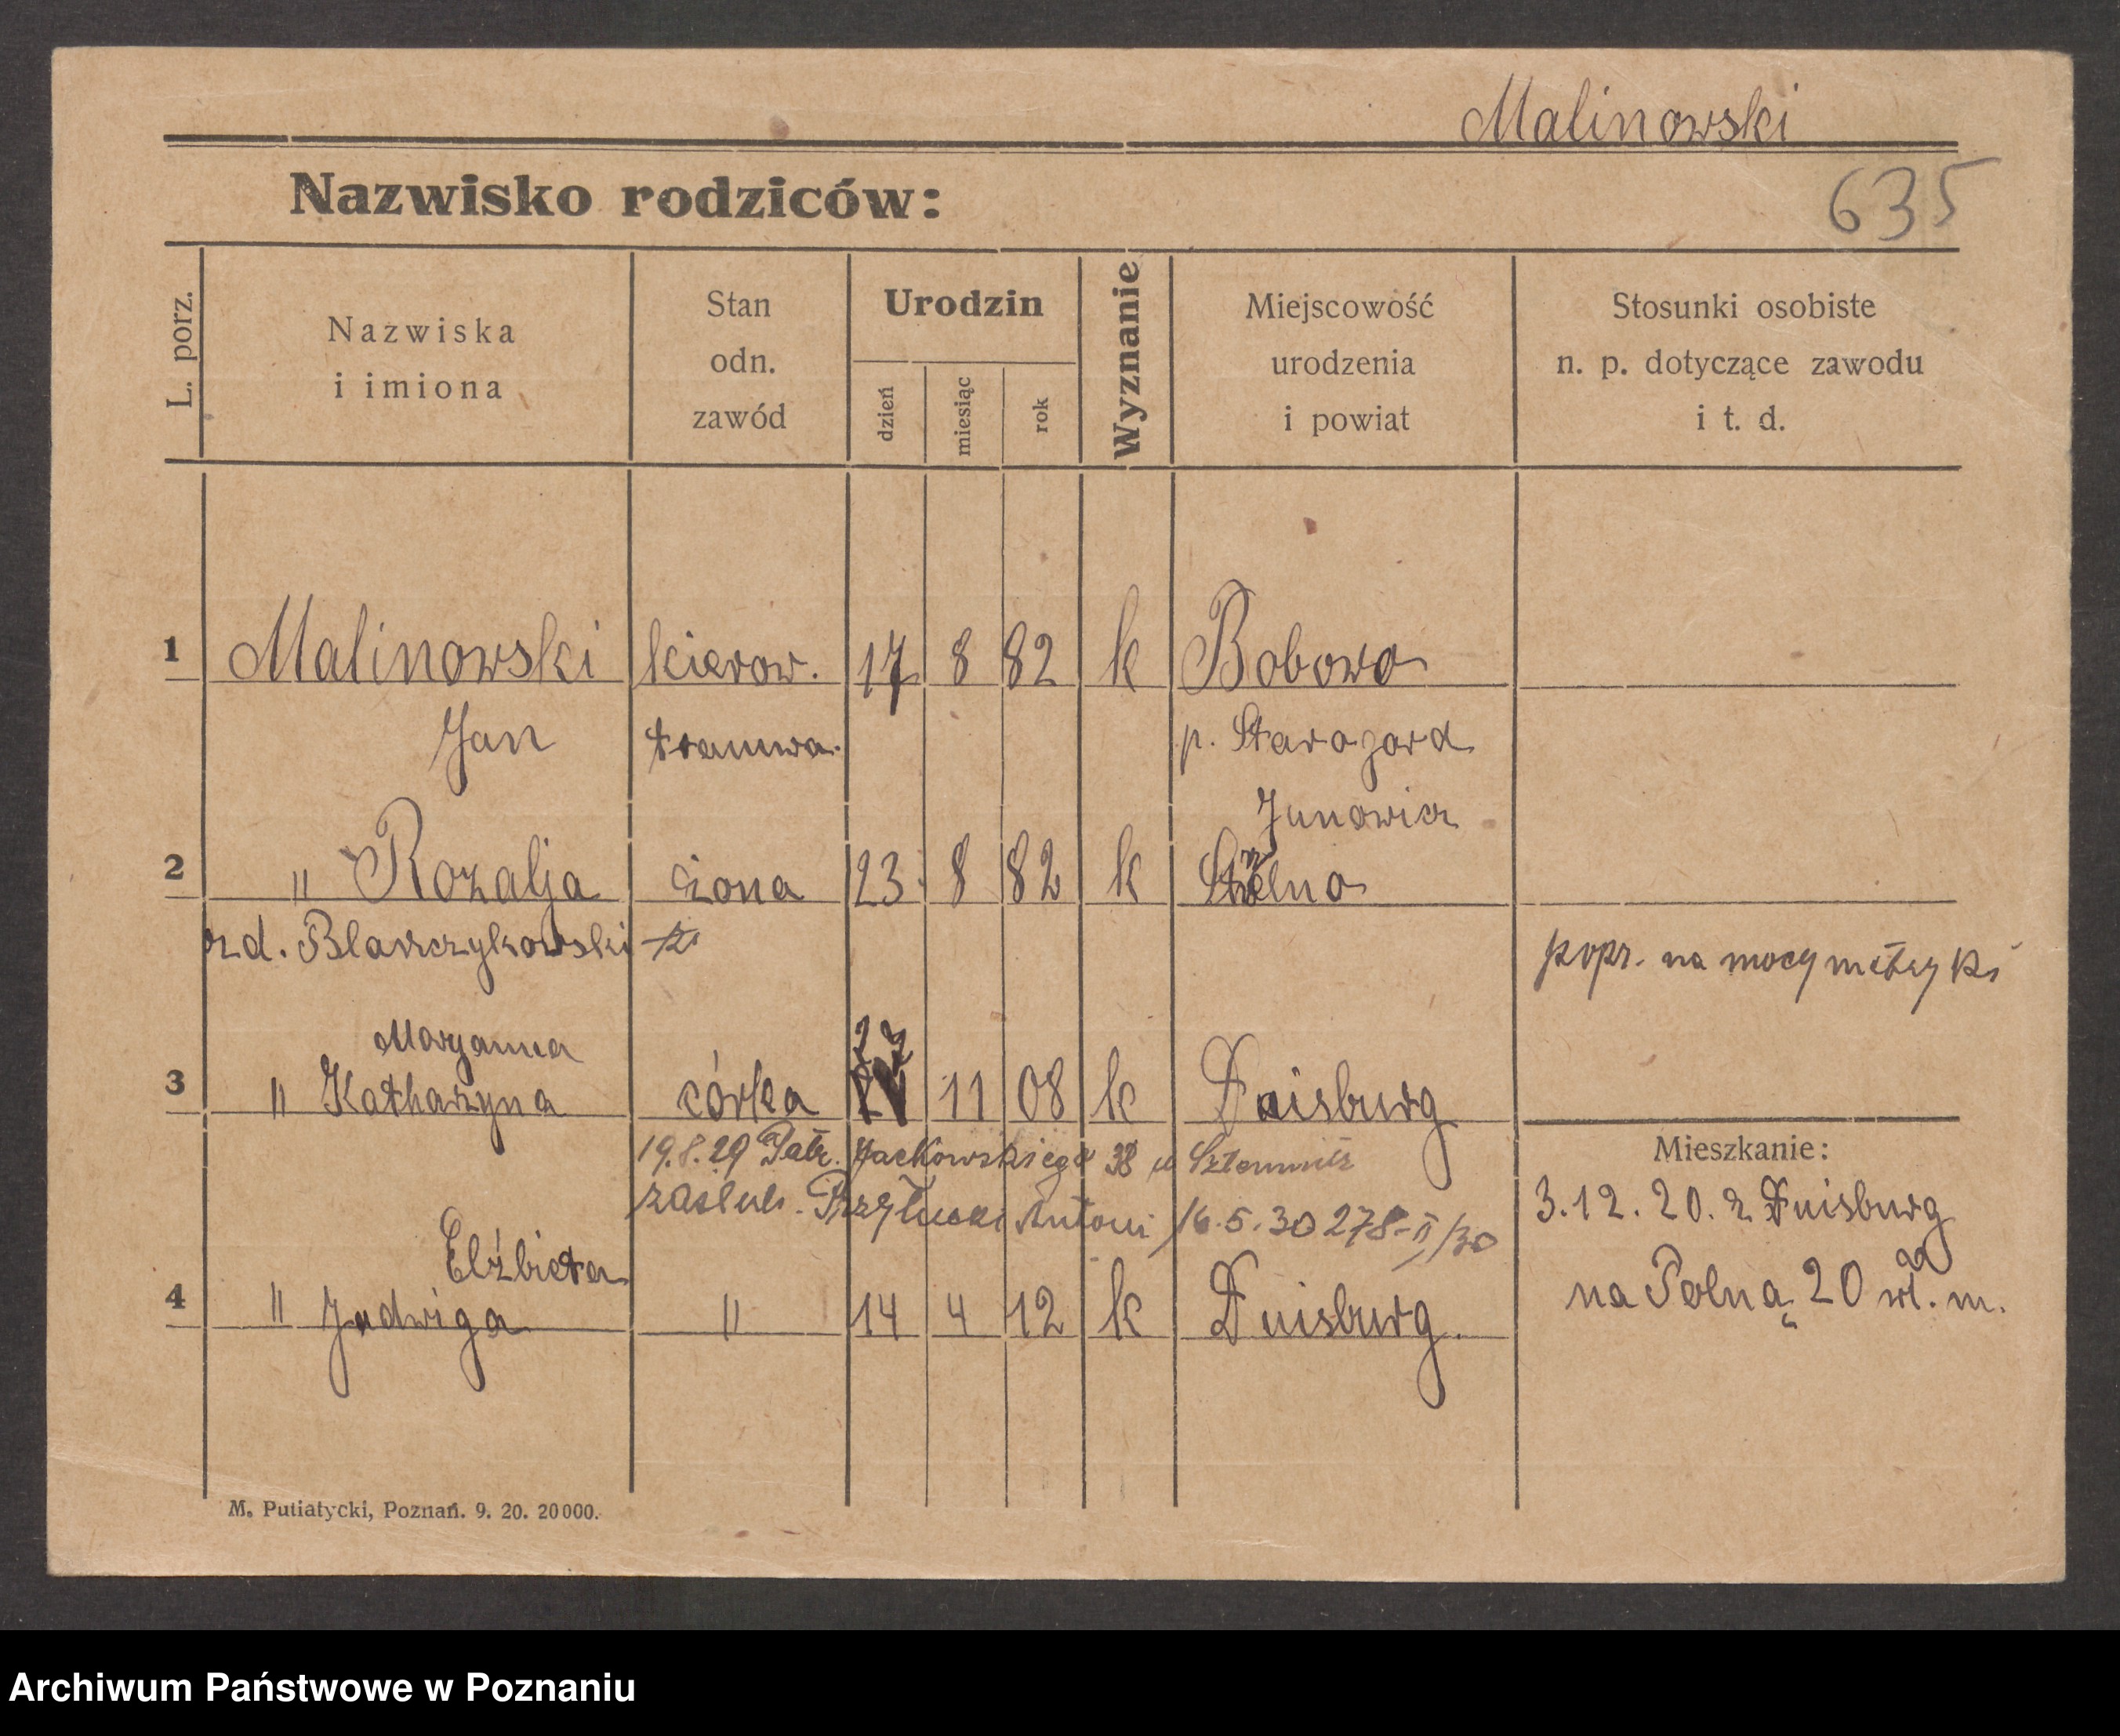 Malinowski
Nazwisko rodziców:
635
L. porz.
Nazwiska
i imiona
Stan
odn.
zawód
Urodzin
dzień
miesiąc
rok
Wyznanie
Miejscowość
urodzenia
i powiat
Stosunki osobiste
n. p. dotyczące zawodu
i t. d.
1 Malinowski kierow. 17 8 82 k Bobowo
Jan tramwa. p. Starogard
2 " Rozalja żona 23. 8 82 k
Junowicz
Strzelno
popr. na mocy metryki
Maryanna
3 " Katharzyna córka 27 11 08 k Duisburg
19.8.29 Jackowskiego 38 u
zaślub. Przyłucki Antoni 16.5.30 278-II/30
Elżbieta
4 " Jadwiga " 14 4 12 k Duisburg.
Mieszkanie:
3.12.20. z Duisburg
na Polną 20 wł. m.
M. Putiatycki, Poznań. 9. 20. 20000.
Archiwum Państwowe w Poznaniu